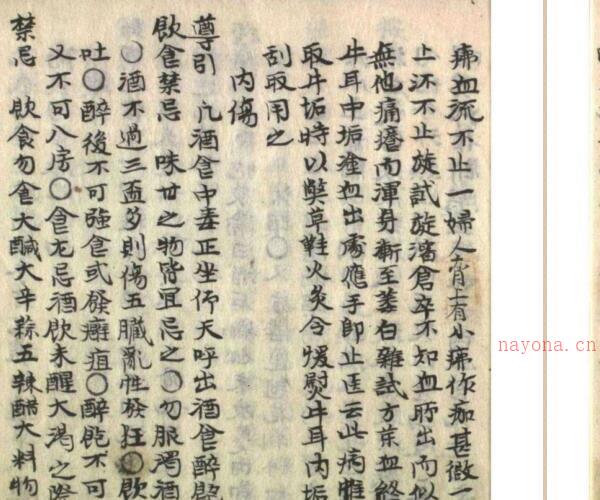 疿血流不止一婦人背上有小疿作痂甚微一
止还不止旋試旋濇倉卒不知血所出而似
無他痛癢而渾身漸至萎白雜試方葉血終
牛耳中垢塗血出處應手即止医云此病惟
取牛垢時以獘草鞋火炙令煖熨牛耳内垢
刮取用之
内傷
導引 凢酒食中毒正坐仰天呼出酒食醉
飲食禁忌 味甘之物皆宜忌之〇勿服濁酒
〇酒不過三盃多則傷五臟亂性發狂〇飲
吐〇醉後不可強食或發癰疽〇醉飽不可
又不可入房〇食尤忌酒飲未醒大渴之際
禁忌 飲食勿食大鹹大辛蒜五辣醋大料物
nayona.cn